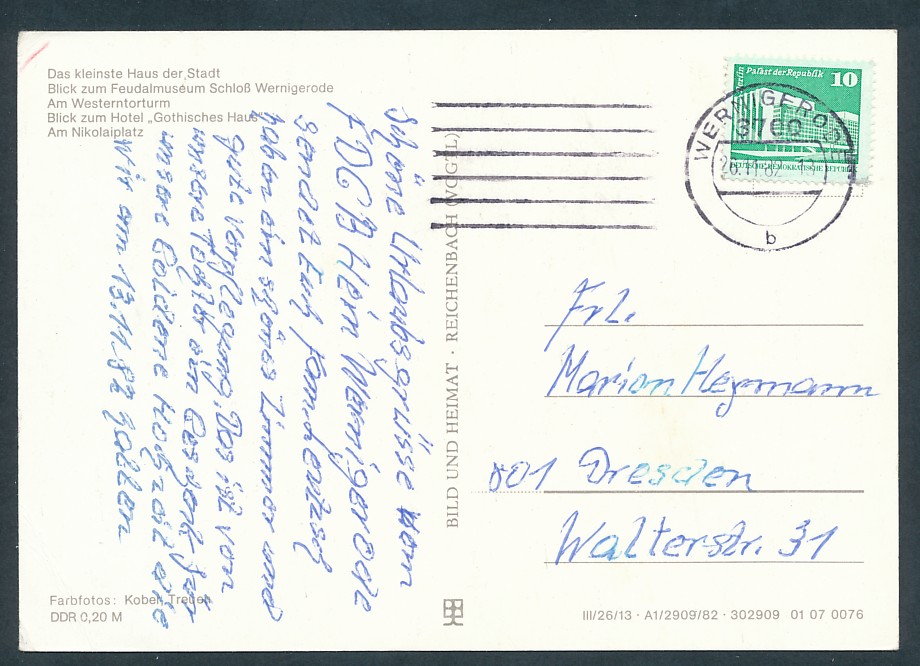 Das kleinste Haus der Stadt
Blick zum Feudalmuseum Schloß Wernigerode
Am Westerntorturm
Blick zum Hotel „Gothisches Haus"
Am Nikolaiplatz
Schöne Urlaubsgrüsse vom
FDGB Heim Wernigerode
sendet Euch
haben ein schönes Zimmer und
gute Verpflegung. Das ist von
unsere Tochter ein Geschenk für
unsere Goldene Hochzeit die
Wir am 13.11.82 hatten
Farbfotos: Kober, Treuen
DDR 0,20 M
BILD UND HEIMAT · REICHENBACH (VOGTL)
Berlin Palast der Republik 10
DEUTSCHE DEMOKRATISCHE REPUBLIK
WERNIGERODE
3700
26.11.82
b
Frl.
Marion Heymann
801 Dresden
Walterstr. 31
III/26/13 · A1/2909/82 · 302909 01 07 0076